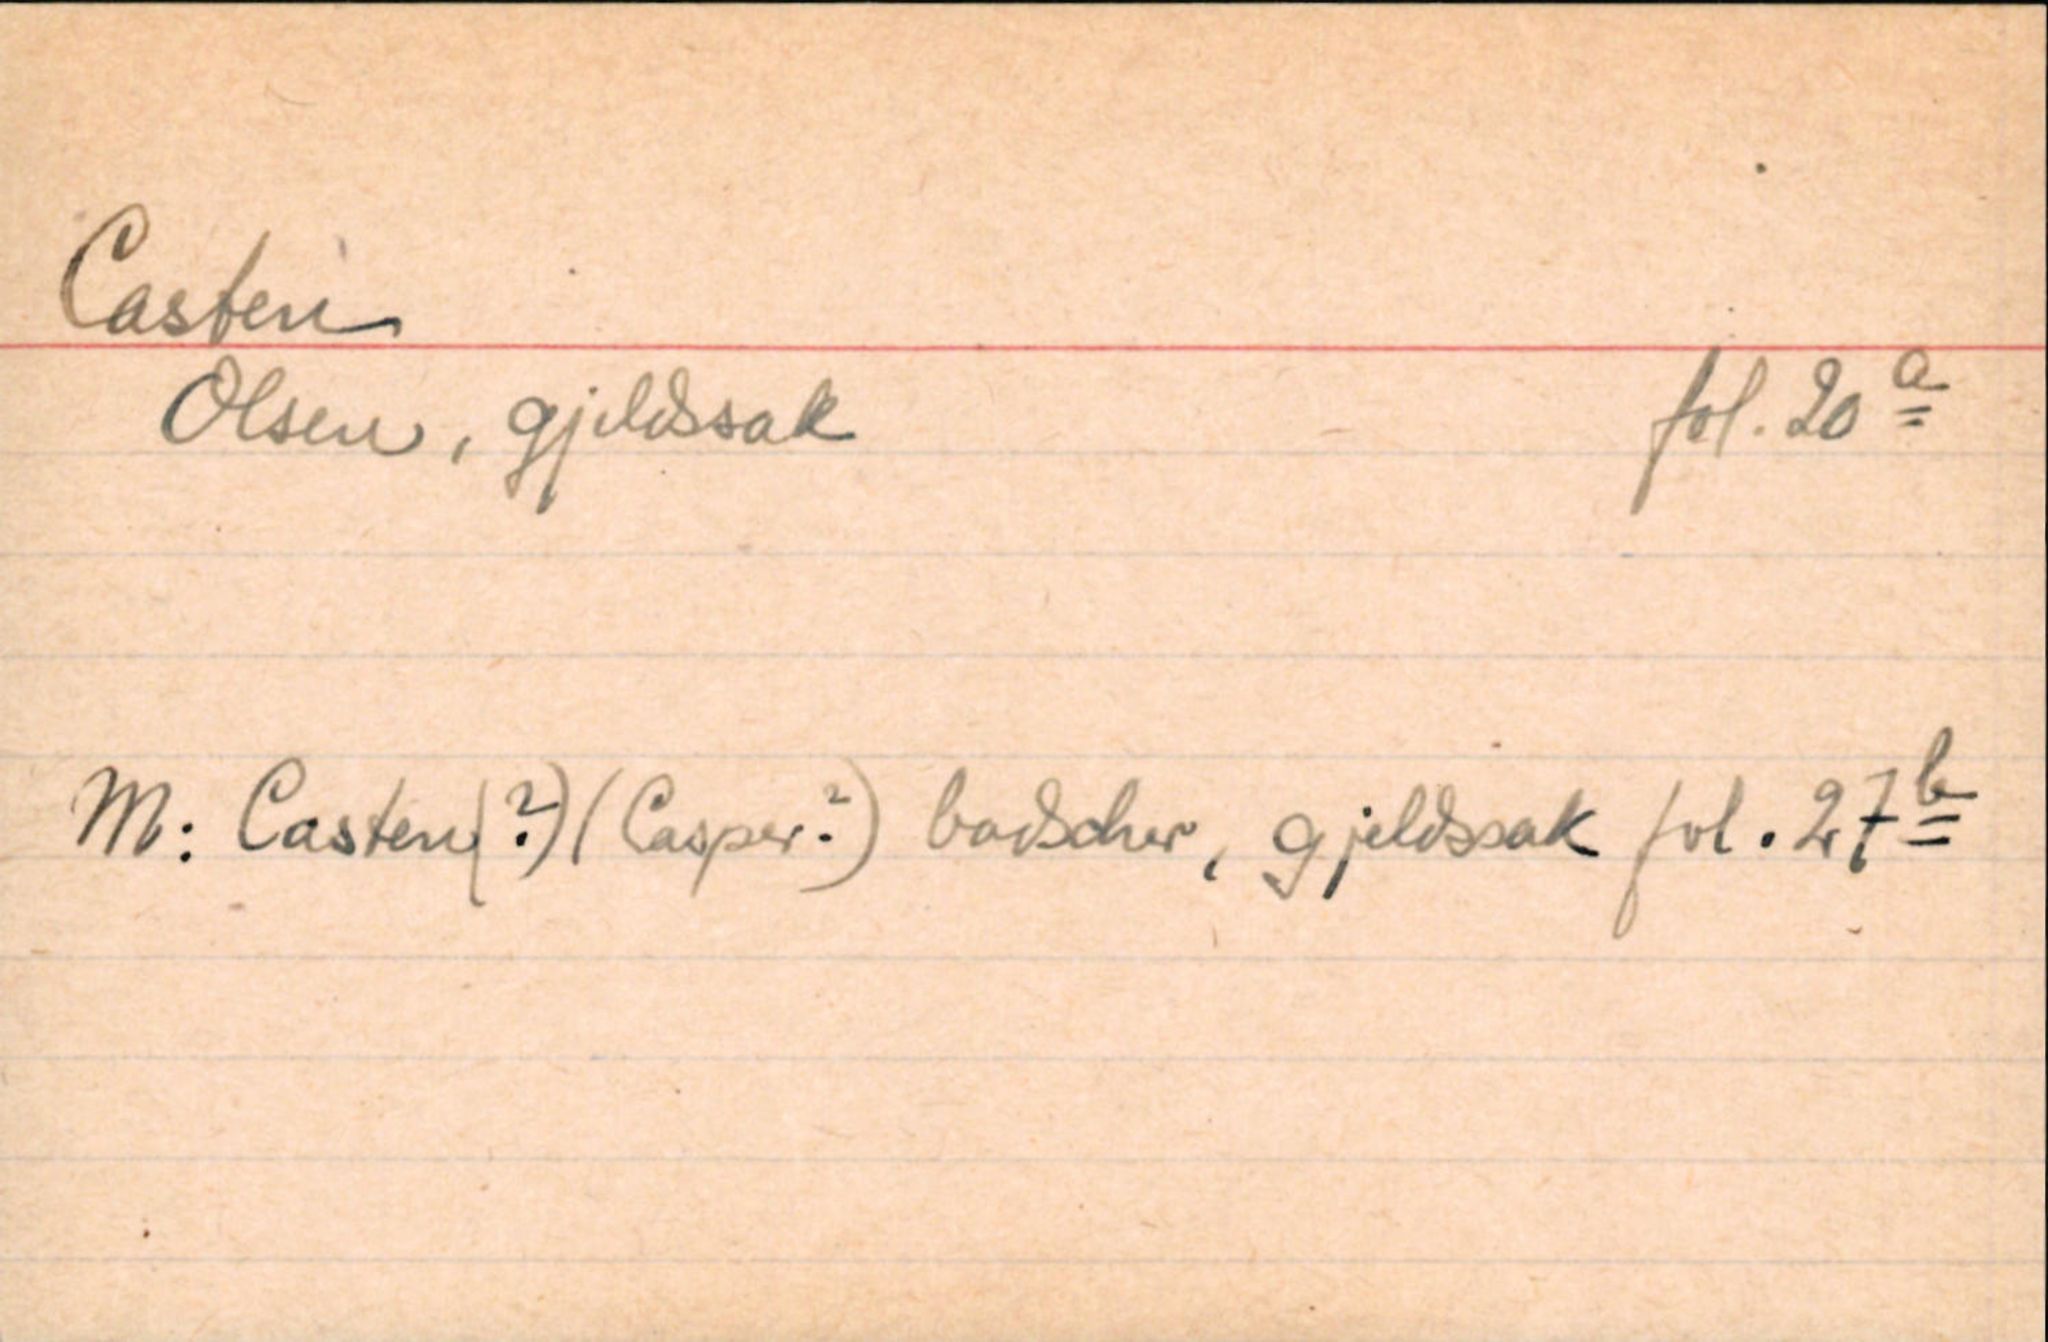 Casten
Olsen, gjeldssak fol. 20a
M: Casten(?) (Casper?) badscher, gjeldssak fol. 27b